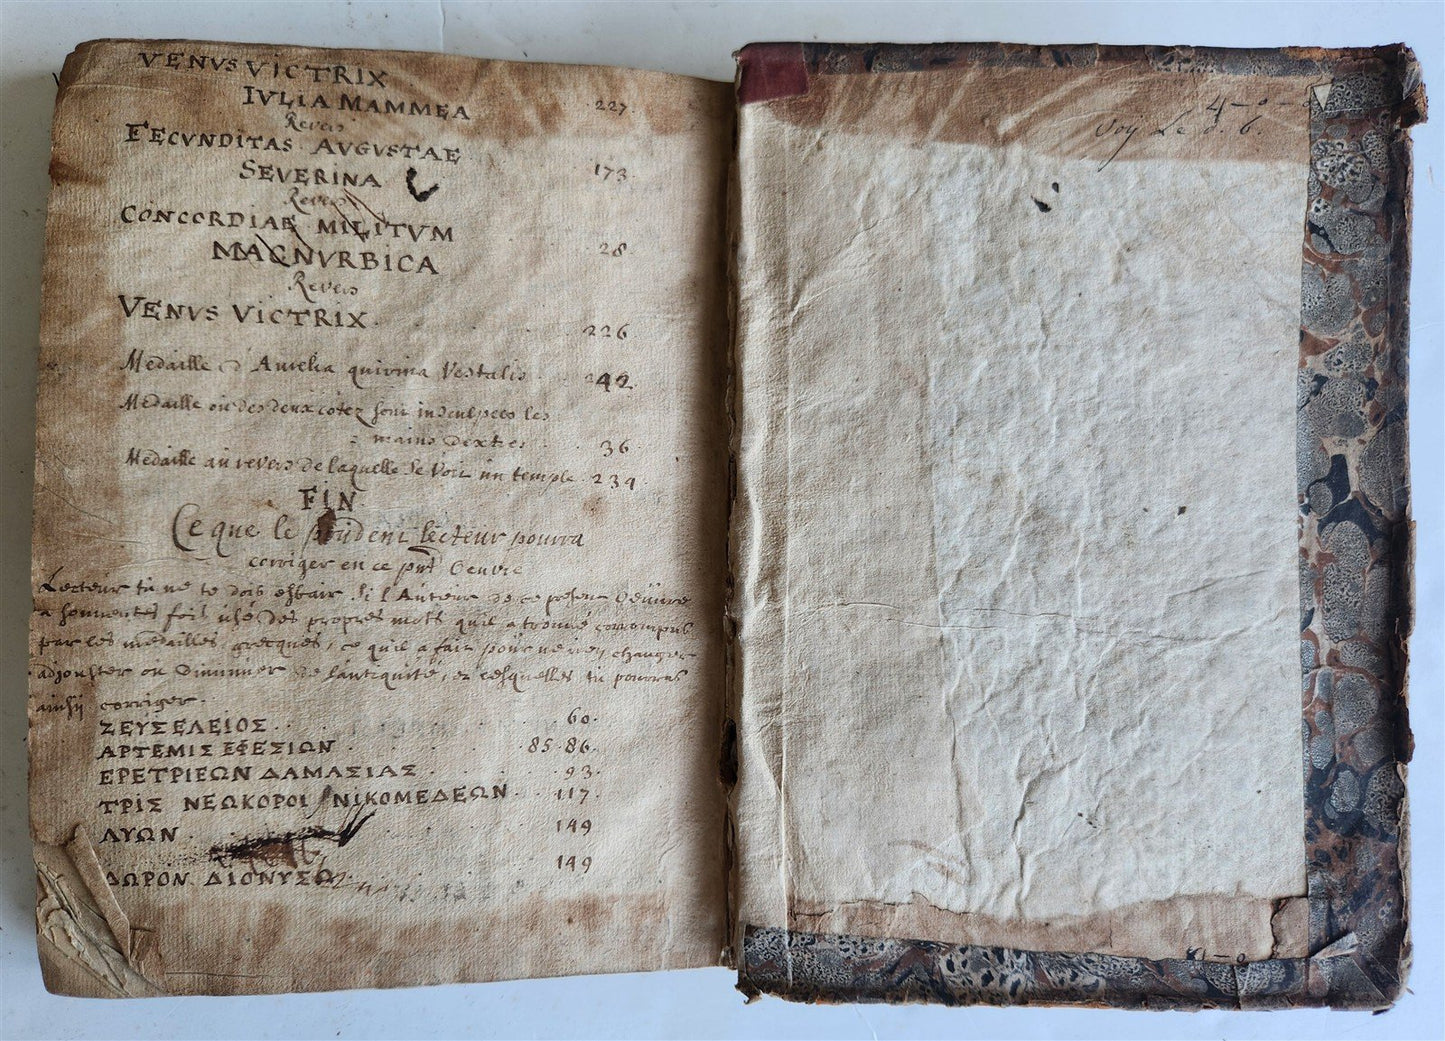 VENVS VICTRIX
IVLIA MAMMEA 227.
Revers
FECVNDITAS AVGVSTAE
SEVERINA 173.
Revers
CONCORDIAE MILITVM
MAGNVRBICA 28
Revers
VENVS VICTRIX. 226
Medaille d'Aurelia quirina Vestalis. 242
Medaille ou des deux cotez sont insculpees les
mains dextres 36
Medaille au revers de laquelle se voit un temple. 234.
FIN
Ce que le prudent lecteur pourra
corriger en ce pnt Oeuvre
Lecteur tu ne te dois esbair si l'Auteur de ce present Oeuvre
a souventes fois usé des propres mots qu'il a trouvé corrompus
par les medailles grecques, ce qu'il a fait pour ne rien changer
adjouster ou diminuer de l'antiquité, et lesquelles tu pourras
ainsij corriger.
ΖΕΥΣΕΛΕΙΟΣ. 60.
ΑΡΤΕΜΙΣ ΕΦΕΣΙΩΝ. 85.86.
ΕΡΕΤΡΙΕΩΝ ΔΑΜΑΣΙΑΣ. 93.
ΤΡΙΣ ΝΕΩΚΟΡΟΙ ΝΙΚΟΜΕΔΕΩΝ. 117.
ΛΥΩΝ. 149
ΔΩΡΟΝ ΔΙΟΝΥΣΩ 149
4-0-0
Voÿ Le d. 6.